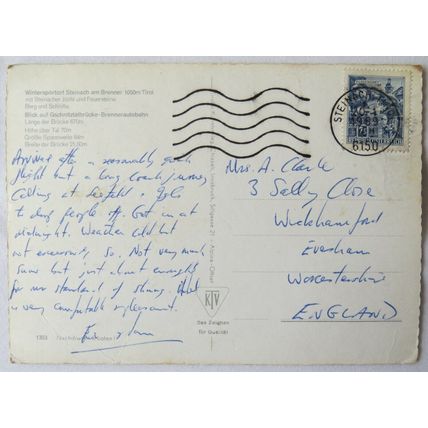 Wintersportort Steinach am Brenner 1050m Tirol
mit Steinacher Jöchl und Feuersteine
Berg und Schilifte
Blick auf Gschnitztalbrücke-Brennerautobahn
Länge der Brücke 670m
Höhe über Tal 70m
Größte Spannweite 84m
Breite der Brücke 21,60m
Arrived after a reasonably good
flight but a long coach journey
calling at Seefeld & Igls
to drop people off. Got in at
midnight. Weather cold but
not excessively so. Not very much
snow but just about enough
for our standard of skiing. Hotel
is very comfortable & pleasant.
1353
KTV
Das Zeichen
für Qualität
STEINACH
6150
Mrs. A. Clarke
3 Sally Close
Wickhamford
Evesham
Worcestershire
ENGLAND